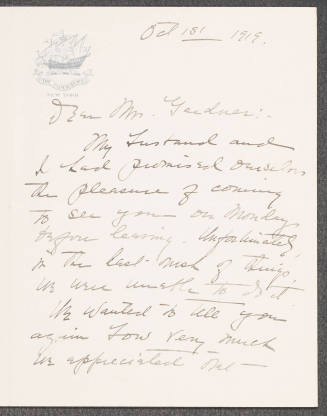 NEW YORK
Oct 1st 1919.
Dear Mrs. Gardner:-
My husband and
I had promised ourselves
the pleasure of coming
to see you on Monday
before leaving. Unfortunately,
in the last rush of things
we were unable to do it
We wanted to tell you
again how very much
we appreciated